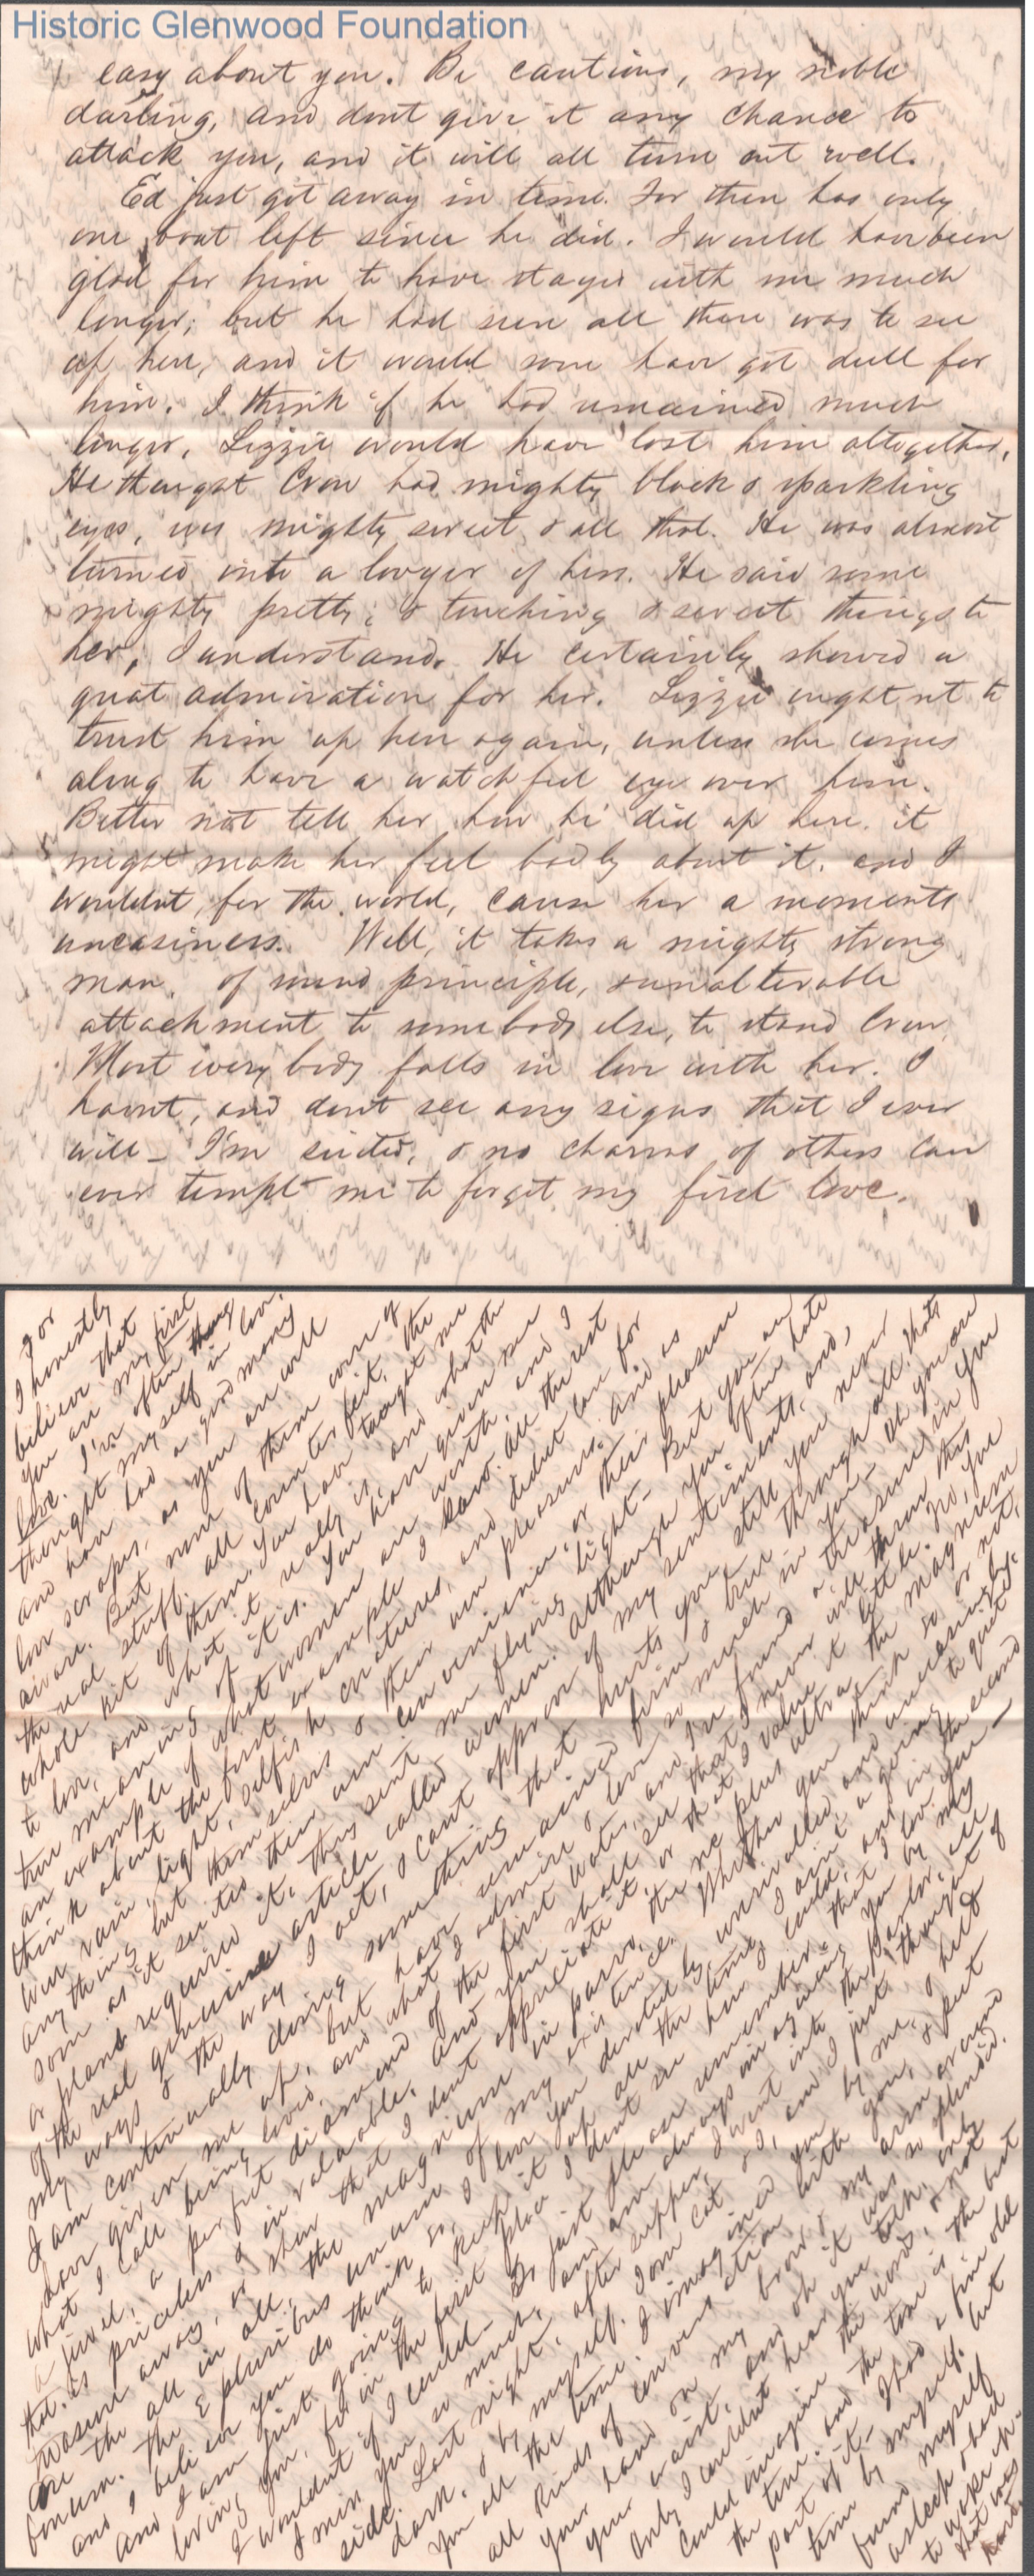 Historic Glenwood Foundation
easy about you. Be cautious, my noble
darling, and dont give it any chance to
attack you, and it will all turn out well.
Ed just got away in time. For there has only
one boat left since he did. I would have been
glad for him to have stayed with me much
longer; but he had seen all there was to see
up here, and it would soon have got dull for
him. I think if he had remained much
longer, Lizzie would have lost him altogether,
He thought Crow had mighty black & sparkling
eyes, was mighty sweet & all that. He was almost
turned into a lovyer of hers. He said some
mighty pretty, & touching & sweet things to
her, I understand. He certainly showed a
great admiration for her. Lizzie ought not to
trust him up here again, unless she comes
along to have a watchful eye over him.
Better not tell her how he did up here. it
might make her feel badly about it. and I
wouldnt, for the world, cause her a moments
uneasiness. Well, it takes a mighty strong
man, of mind principle, & unalterable
attachment to somebody else, to stand Crow
Most every body falls in love with her. I
havnt, and dont see any signs that I ever
will – I'm suited, & no charms of others can
ever tempt me to forget my first love.
For
I honestly
believe that
you are my first
love. I'm often thought
thought myself in love,
and have had a good many
love scrapes, as you are well
aware. But none of them were of
the real stuff. all counterfeit, the
whole kit of them. You have taught me
to love, and what it really is, and what the
true meaning of it is. You have given me
an example of what women are worth, and I
think about the first example I saw. all the rest
were vain, light, selfish creatures, and didnt care for
anything but themselves & their own pleasures. And as
soon as it suited their own convenience, or their pleasure
or plans required it, they sent me flying light – But you are
of the real genuine article called women. Although you often hate
my ways & the way I act, & cant approve of my sentiments, and,
I am continually doing something that hurts you, still you never
have given me up, but have remained firm & true through all. thats
what I call being loved, and what I admire & love so much in you – Oh you are
a jewel, a perfect diamond of the first water, and I've found a treasure in you
that is priceless & invaluable. And you shall see that I never will throw this
treasure away, or show that I dont appreciate it, or that I value it little. No, you
are the all in all, the magnum in parvo, the ne plus ultra, the magnum
bonum. the E pluribus unum of my existence. Whether you think so or not,
and I believe you do think so, I love you devotedly, unrivalled, and unceasingly.
And I am just going to keep it up all the time, I aint a going to quit
loving you, for in the first place I dont see how I could, and in the second
I wouldnt if I could – So just please remember that I love you –
I miss you so much, and am always imagining you by my
side. Last night, after supper, I went into the parlor, all
dark, & by myself. Tom Cat & I, and I just thought of
you all the time. I imagined you by me, & held
all kinds of conversation with you, & put
your hand on my brow & my arm around
your waist, and oh it was so splendid.
Only I couldnt hear you talk, only
could imagine the words, & not
the tone. and the tone is the best
part of it – I had a fine old
time by myself. but
found myself
asleep & had
to wake up.
that was
hard.